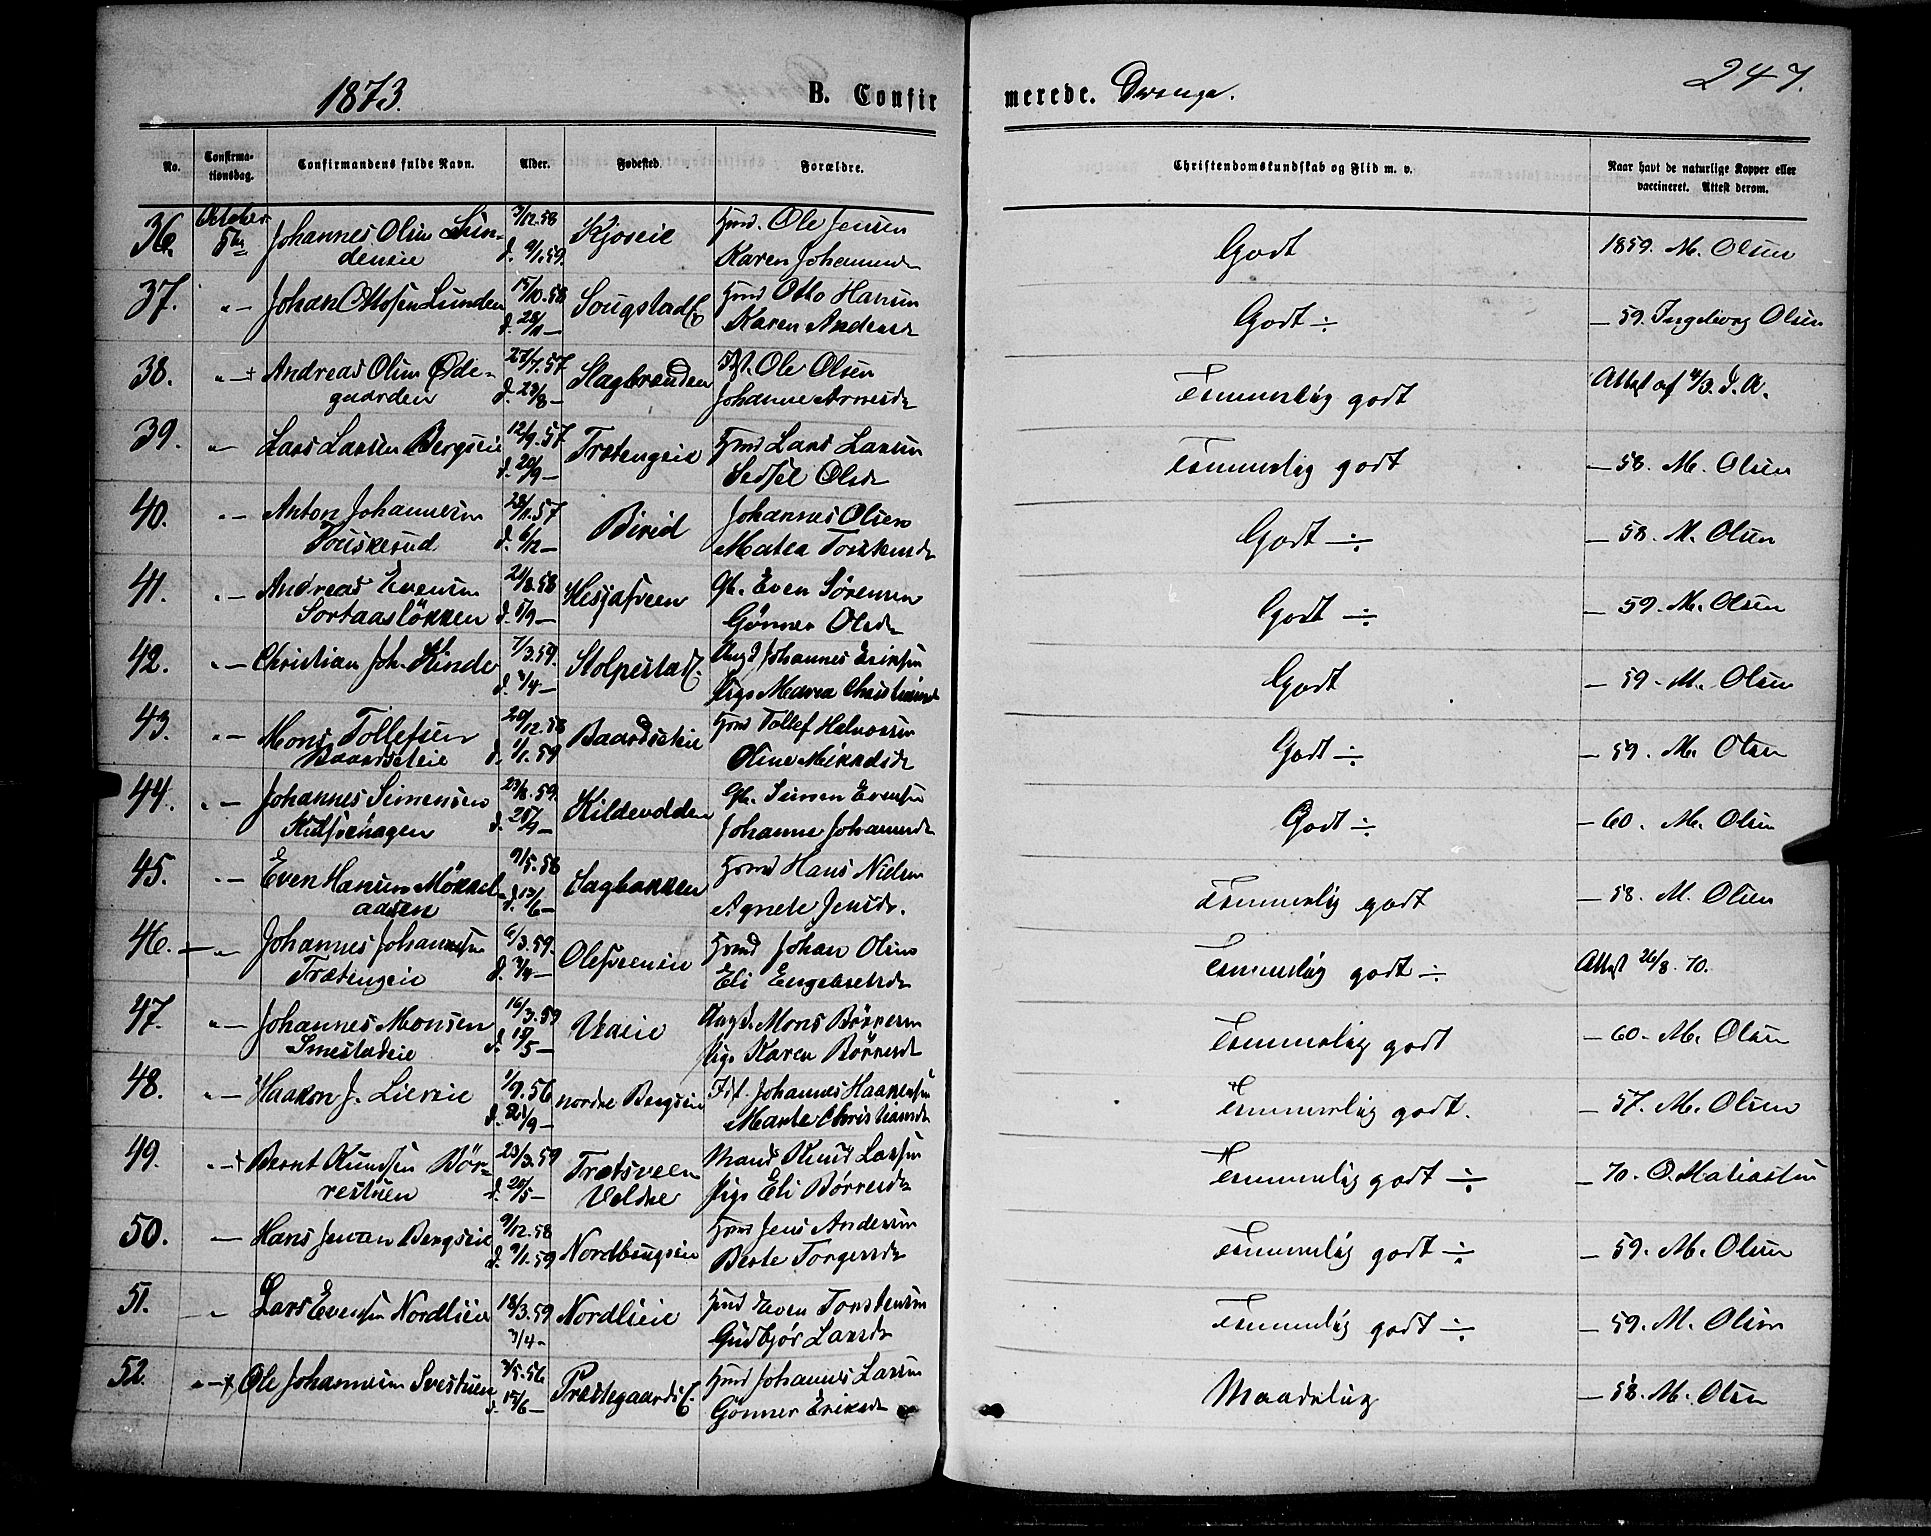 1873. B. Confirmerede. Drenge. 247.
No. Confirmationsdag. Confirmandens fulde Navn. Alder. Fødested. Forældre. Christendomskundskab og Flid m. v. Naar havt de naturlige Kopper eller vaccineret. Attest derom.
36. October 5te Johannes Olsen Lundeneie 3/12.58 d. 9/1.59. Kjoseie Hmd. Ole Jensen Karen Johannesd. Godt 1859. M. Olsen
37. "— Johan Ottosen Lunden 15/10.58 d. 28/11— Sougstad Hmd Otto Hansen Karen Andersd Godt ÷ — 59. Ingeborg Olsen
38. "—+ Andreas Olsen Ødegaarden 27/7.57 d. 23/8— Ole Olsen Johanne Arnesd. Temmelig godt Attest af 4/3 d. A.
39. "— Lars Larsen Bergseie 12/9.57. d. 20/9— Trætengeie Hmd Lars Larsen Sedsel Olsd. Temmelig godt — 58. M. Olsen
40. "— Anton Johannesen 28/11.57 d. 6/12— Birid Johannes Olsen Matea Godt ÷ — 58. M. Olsen
41. "— Andreas Evensen Sortaasløkken 21/8.58 d. 5/9— Hesjafveen Gb. Even Sørensen Gønner Olsd. Godt ÷ — 59. M. Olsen
42. "— Christian Joh. Hinde 7/3.59. d. 4/4— Stolpestad Ungk Johannes Eriksen Pige Marea Christiansd Godt — 59. M. Olsen
43. "— Mons Tollefsen Baardseteie 20/12.58 d. 1/1.59 Baardseteie Hmd Tollef Halvorsen Oline Mikkelsd. Godt ÷ — 59. M. Olsen
44. "— Johannes Simensen 23/8.59. d. 25/9— Kildevolden Gb. Simen Evensen Johanne Johannesd. Godt ÷ — 60. M. Olsen
45. "— Even Hansen Møkkelaasen 9/5.58 d. 13/6— Sagbakken Hmd Hans Nielsen Agnete Jensd. Temmelig godt — 58. M. Olsen
46. — " Johannes Johannesen Trætengeie 6/3.59. d. 3/4— Olesveeneie Hmd Johan Olsen Eli Engebretsd. Temmelig godt ÷ Attest 26/8.70.
47. "— Johannes Monsen Smestadeie 16/3.59 d. 19/5— Ungk. Mons Børresen Pige Karen Børresd. Temmelig godt — 60. M. Olsen
48. "— Haakon J. Liereie 1/9.56 d. 21/9— nordre Bergseie Johannes Haakensen Marte Christiansd. Temmelig godt. — 57. M. Olsen
49. "—+ Bernt Knudsen Børrestuen 23/3.59 d. 20/5— Trætsveen Veldre Mand Knud Larsen Pige Eli Børresd. Temmelig godt ÷ — 70. O. Matiassen
50. — Hans Jensen Bergseie 9/12.58 d. 9/1.59 Nordbergseie Hmd Jens Andersen Berte Torgersd. Temmelig godt ÷ — 59. M. Olsen
51. " Lars Evensen Nordlieie 18/3.59 3/4— Nordlieie Hmd Even Torstensen Gudbjør Larsd. Temmelig godt ÷ — 59. M. Olsen
52. "—+ Ole Johannesen Svestuen 3/5.56 d. 15/6— Præstegaards Hmd Johannes Larsen Gønner Eriksd. Maadelig — 58. M. Olsen